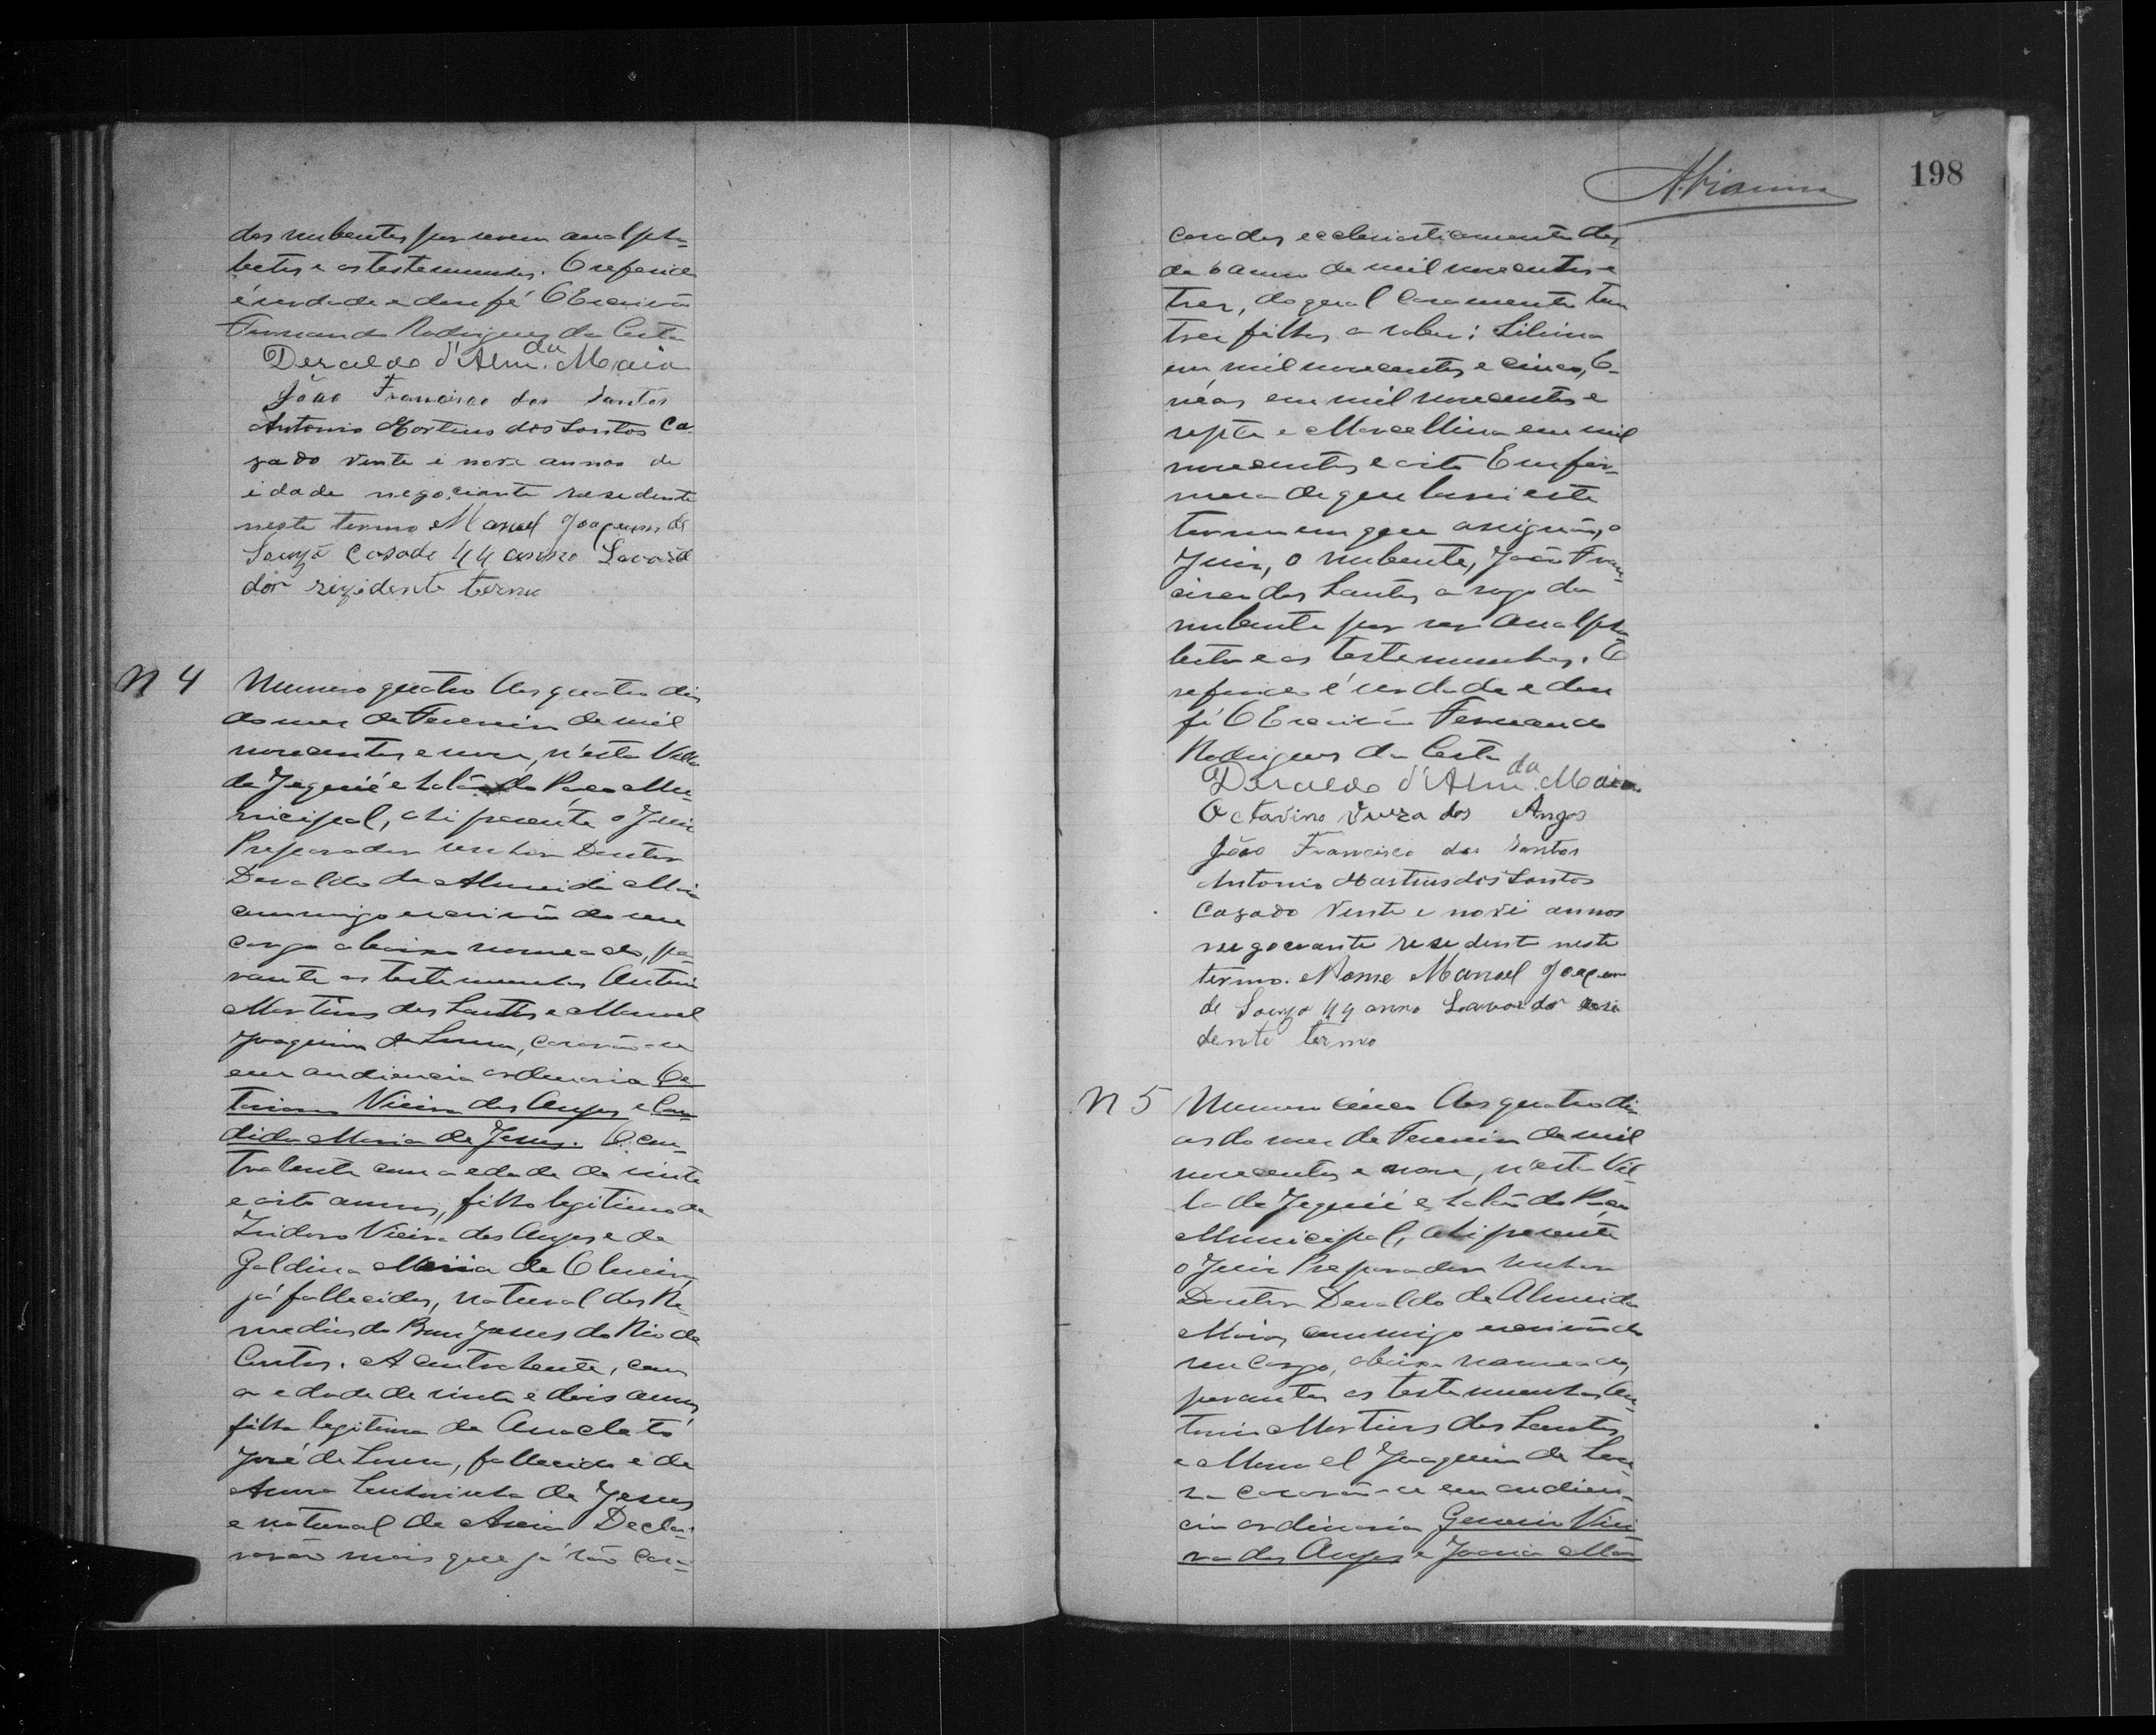 dos nubentes por serem analpha-
betos e as testemunhas. O referido
é verdade e dou fé O Escrivão
Fernando Rodrigues da Costa
Deraldo d'Alm.da Maia
João Francisco dos Santos
Antonio Martins dos Santos Ca-
zado vente i nove annos de
idade negociante resedente
neste termo Manoel Joaquim de
Souza Casado 44 anno Lavra
dor rizidente termo
N 4
Numero quatro Aos quatro dias
do mez de Fevereiro de mil
novecentos e nove, n'esta Villa
de Jequié e salão do Paço Mu-
nicipal, ahi presente o Juiz
Preparador senhor Doutor
Deraldo de Almeida Maia
commigo escrivão do seu
cargo abaixo nomeado, pe-
rante as testemunhas Antonio
Martins dos Santos e Manoel
Joaquim de Souza, casarão-se
em audiencia ordinaria Oc-
taviano Vieira dos Anjos e Can-
dida Maria de Jesus. O con-
trahente com a edade de vinte
e oito annos, filho legitimo de
Izidoro Vieira dos Anjos e de
Galdina Maria de Oliveira
já fallecidos, natural dos Re-
medios do Bom Jesus do Rio de
Contas. A contrahente, com
a edade de vinte e dois annos,
filha legitima de Anacleto
José de Souza, fallecido e de
Anna de Jesus
e natural de Areia Decla-
rarão mais que já são casa-
198
casados ecclesiasticamente des-
de o anno de mil novecentos e
trez, do qual casamento tem
trez filhos a saber: Silvina
em mil novecentos e cinco, E-
néas em mil novecentos e
septe e Marcellina em mil
novecentos e oito Em fir-
meza do que lavrei este
termo em que assignão, o
Juiz, o nubente, João Fran-
cisco dos Santos a rogo da
nubente por ser analpha-
beta e as testemunhas. O
referido é verdade e dou
fé O Escrivão Fernando
Rodrigues da Costa
Deraldo d'Alm.da Maia
Octavino Vieza dos Angos
João Francisco dos Santos
Antonio Martins dos Santos
Cazado vente e nove annos
negocevante resedente neste
termo. Nome Manoel Joaquim
de Souza 44 anno Lavrador resi
dente termo
N 5
Numero cinco Aos quatro di-
as do mez de Fevereiro de mil
novecentos e nove, n'esta Vil-
la de Jequié e salão do Paço
Municipal, ahi presente
o Juiz Preparador senhor
Doutor Deraldo de Almeida
Maia, commigo escrivão do
seu cargo, abaixo nomeado,
perante as testemunhas An-
tonio Martins dos Santos
e Manoel Joaquim de Sou-
za casarão-se em audien-
cia ordinaria Genesio Viei-
ra dos Anjos e Joana Ma-